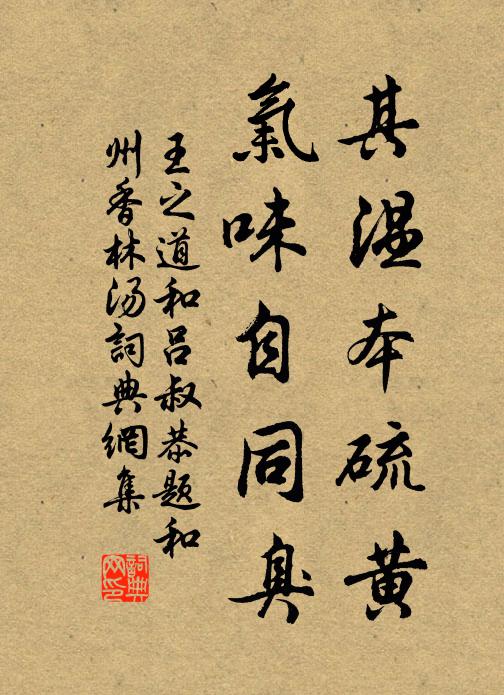 其温本硫黄
氣味自同臭
王之道和吕叔恭题和
州香林汤詞典網集
詞典网印